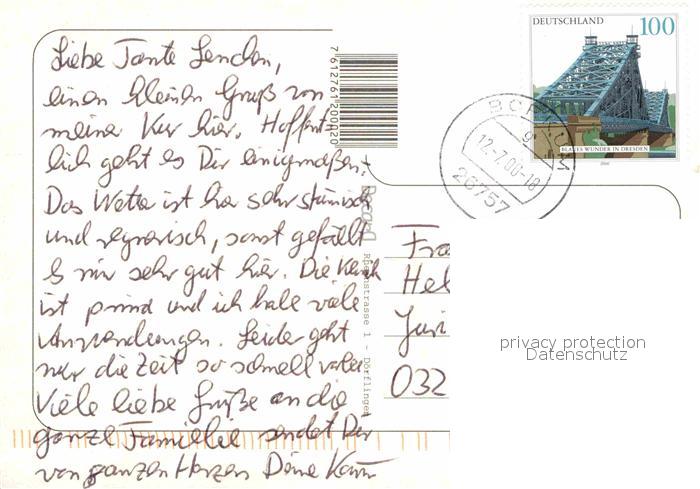 Liebe Tante Lenchen,
einen kleinen Gruß von
meiner Kur hier. Hoffent-
lich geht es Dir einigmaßen.
Das Wetter ist hier sehr stürmisch
und regnerisch, sonst gefällt
es mir sehr gut hier. Die Klinik
ist prima und ich habe viele
Anwendungen. Leider geht
nur die Zeit so schnell vorbei.
Viele liebe Grüße an die
ganze Familie sendet Dir
von ganzem Herzen Deine Karin
7612761200020
Rosenstrasse 1 - Dörflingen
DEUTSCHLAND 100
BLAUES WUNDER IN DRESDEN
2000
BORKUM
12.-7.00-18
26757
Fra
Hel
032
privacy protection
Datenschutz